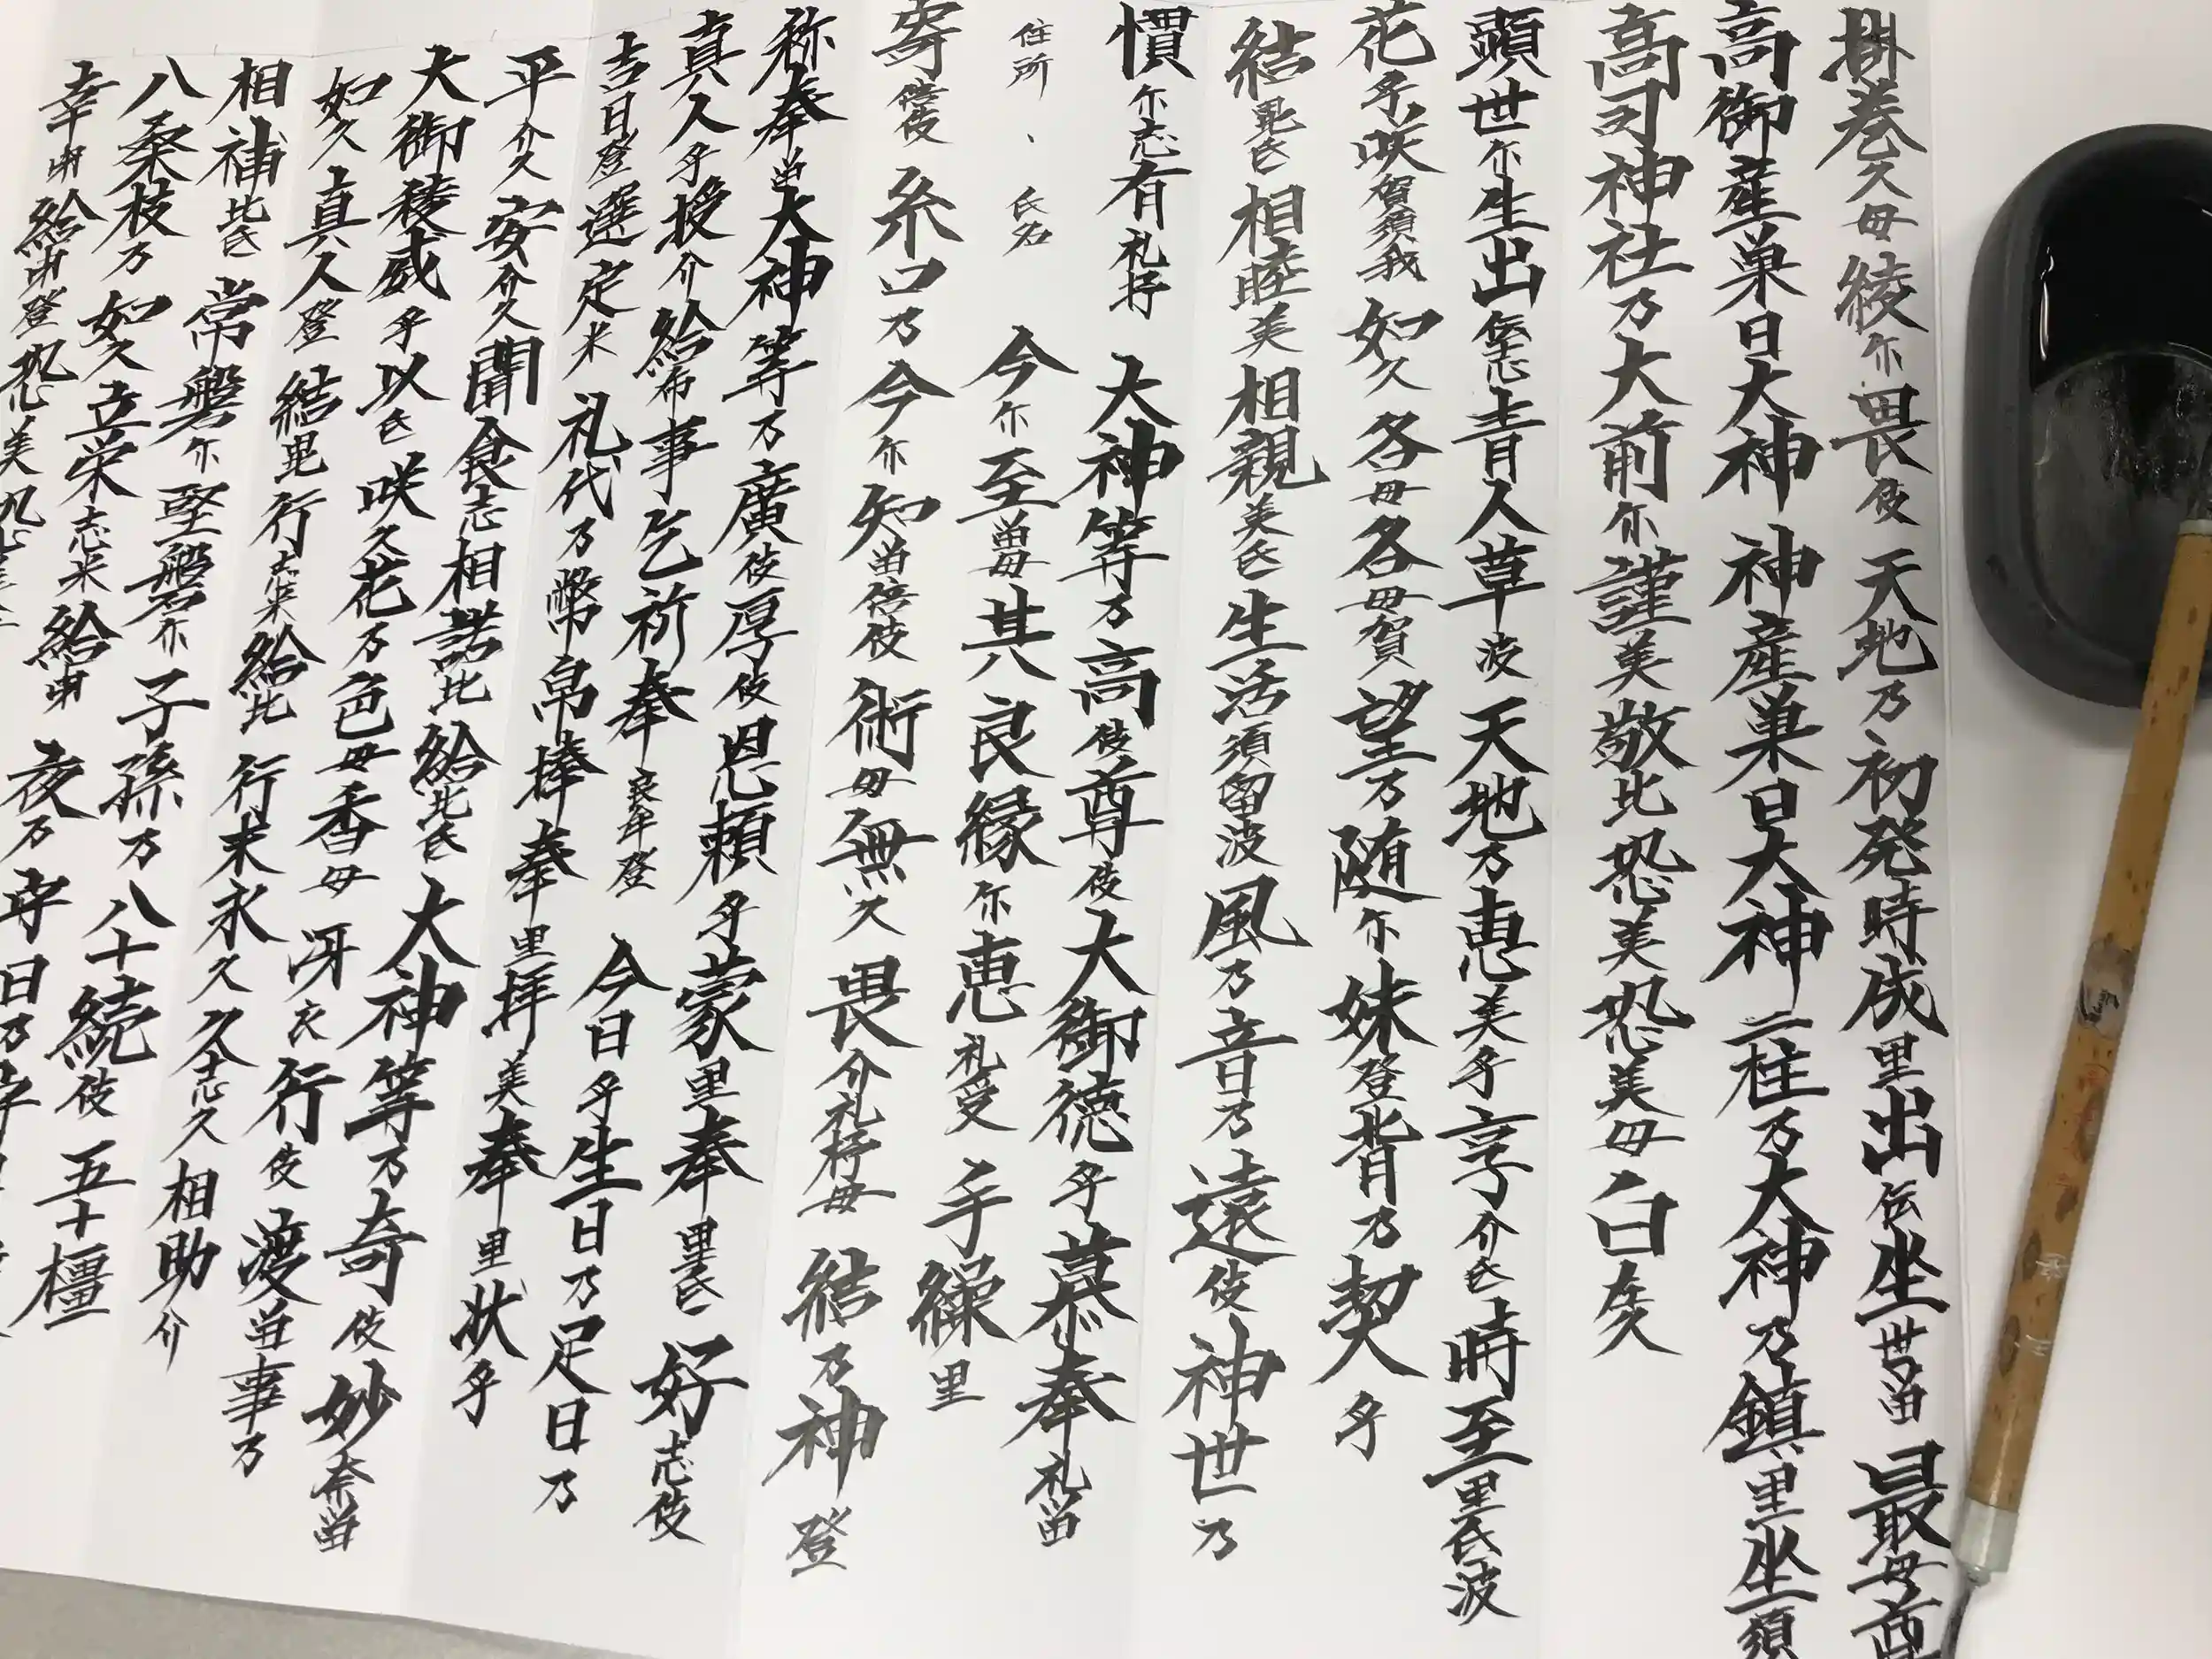 掛巻久母綾尓畏伎天地乃初発時成里出伝坐世留最母尊
高御産巣日大神神産巣日大神二柱乃大神乃鎮里坐須
高司神社乃大前尓謹美敬比恐美恐美母白左久
顕世尓生出伝志青人草波天地乃恵美乎享介氐時至里氐波
花乎咲賀須我如久各母各母賀望乃随尓妹登背乃契乎
結毘氐相睦美相親美氐生活須留波風乃音乃遠伎神世乃
慣尓志有礼抒大神等乃高伎尊伎大御徳乎慕奉礼留
住所、氏名今尓至留母其良縁尓恵礼受手繰里
寄倍伎糸口乃今尓知留倍伎術母無久畏介礼抒母結乃神登
称奉留大神等乃廣伎厚伎恩頼乎蒙里奉里氐好志伎
真人乎授介給布事乞祈奉良牟登今日乎生日乃足日乃
吉日登選定米礼代乃幣帛捧奉里拝美奉里状乎
平介久安介久聞食志相諾比給比氐大神等乃奇伎妙奈留
大御稜威乎以氐咲久花乃色母香母冴衣行伎渡留事乃
如久真人登結毘行志米給比行末永久久志久相助介
相補比氐常磐尓堅磐尓子孫乃八十続伎五十橿
八桑枝乃如久立栄志米給閇夜乃守日乃
幸閇給閇登恐美